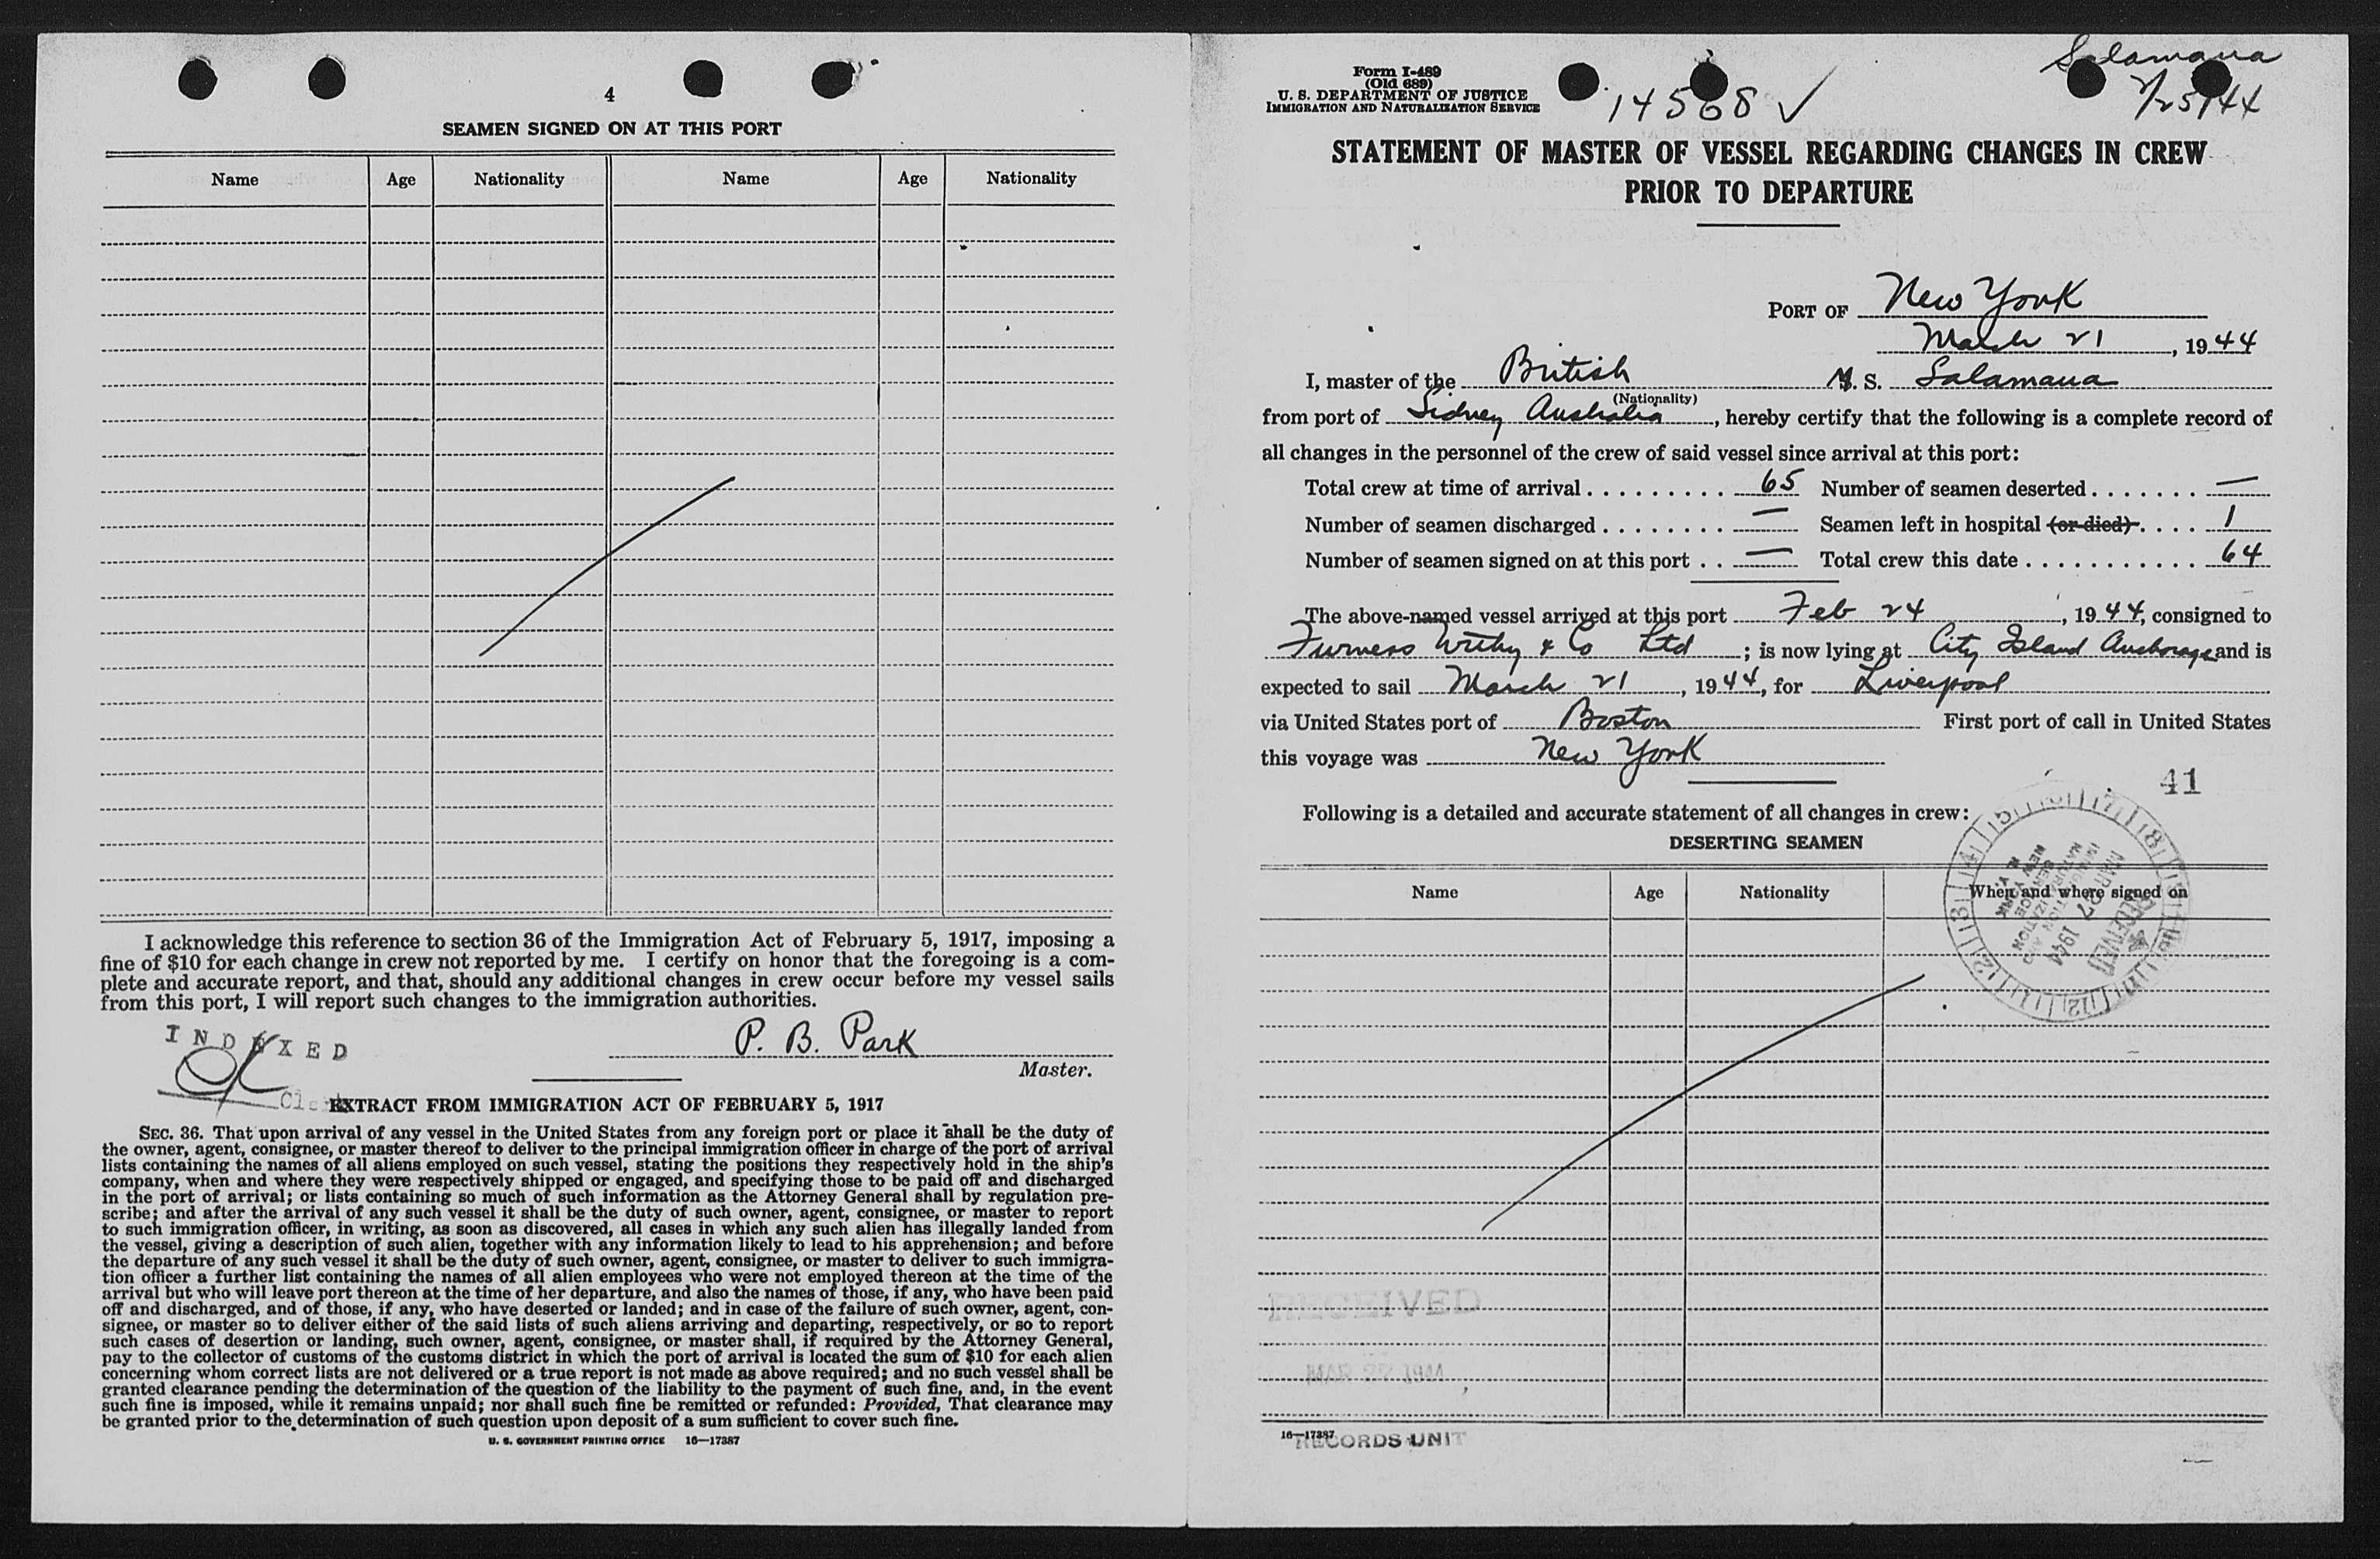 4
SEAMEN SIGNED ON AT THIS PORT
Name Age Nationality Name Age Nationality
I acknowledge this reference to section 36 of the Immigration Act of February 5, 1917, imposing a
fine of $10 for each change in crew not reported by me. I certify on honor that the foregoing is a com-
plete and accurate report, and that, should any additional changes in crew occur before my vessel sails
from this port, I will report such changes to the immigration authorities.
INDEXED
P. B. Park
Master.
EXTRACT FROM IMMIGRATION ACT OF FEBRUARY 5, 1917
SEC. 36. That upon arrival of any vessel in the United States from any foreign port or place it shall be the duty of
the owner, agent, consignee, or master thereof to deliver to the principal immigration officer in charge of the port of arrival
lists containing the names of all aliens employed on such vessel, stating the positions they respectively hold in the ship's
company, when and where they were respectively shipped or engaged, and specifying those to be paid off and discharged
in the port of arrival; or lists containing so much of such information as the Attorney General shall by regulation pre-
scribe; and after the arrival of any such vessel it shall be the duty of such owner, agent, consignee, or master to report
to such immigration officer, in writing, as soon as discovered, all cases in which any such alien has illegally landed from
the vessel, giving a description of such alien, together with any information likely to lead to his apprehension; and before
the departure of any such vessel it shall be the duty of such owner, agent, consignee, or master to deliver to such immigra-
tion officer a further list containing the names of all alien employees who were not employed thereon at the time of the
arrival but who will leave port thereon at the time of her departure, and also the names of those, if any, who have been paid
off and discharged, and of those, if any, who have deserted or landed; and in case of the failure of such owner, agent, con-
signee, or master so to deliver either of the said lists of such aliens arriving and departing, respectively, or so to report
such cases of desertion or landing, such owner, agent, consignee, or master shall, if required by the Attorney General,
pay to the collector of customs of the customs district in which the port of arrival is located the sum of $10 for each alien
concerning whom correct lists are not delivered or a true report is not made as above required; and no such vessel shall be
granted clearance pending the determination of the question of the liability to the payment of such fine, and, in the event
such fine is imposed, while it remains unpaid; nor shall such fine be remitted or refunded: Provided, That clearance may
be granted prior to the determination of such question upon deposit of a sum sufficient to cover such fine.
U. S. GOVERNMENT PRINTING OFFICE 16—17387
Form I-489
(Old 689)
U. S. DEPARTMENT OF JUSTICE
IMMIGRATION AND NATURALIZATION SERVICE
14568 ✓
Salamaua
2/25/44
STATEMENT OF MASTER OF VESSEL REGARDING CHANGES IN CREW
PRIOR TO DEPARTURE
PORT OF New York
March 21, 1944
I, master of the British M. S. Salamaua
(Nationality)
from port of Sidney Australia, hereby certify that the following is a complete record of
all changes in the personnel of the crew of said vessel since arrival at this port:
Total crew at time of arrival . . . . . . . . . 65 Number of seamen deserted . . . . . . . —
Number of seamen discharged . . . . . . . . — Seamen left in hospital (or died) . . . . 1
Number of seamen signed on at this port . . — Total crew this date . . . . . . . . . . . 64
The above-named vessel arrived at this port Feb 24, 1944, consigned to
Furness Withy & Co Ltd; is now lying at City Island Anchorage and is
expected to sail March 21, 1944, for Liverpool
via United States port of Boston First port of call in United States
this voyage was New York
41
Following is a detailed and accurate statement of all changes in crew:
DESERTING SEAMEN
Name Age Nationality When and where signed on
RECEIVED
MAR 27 1944
IMMIGRATION AND
NATURALIZATION
SERVICE
NEW YORK
RECEIVED
16—17387
RECORDS UNIT